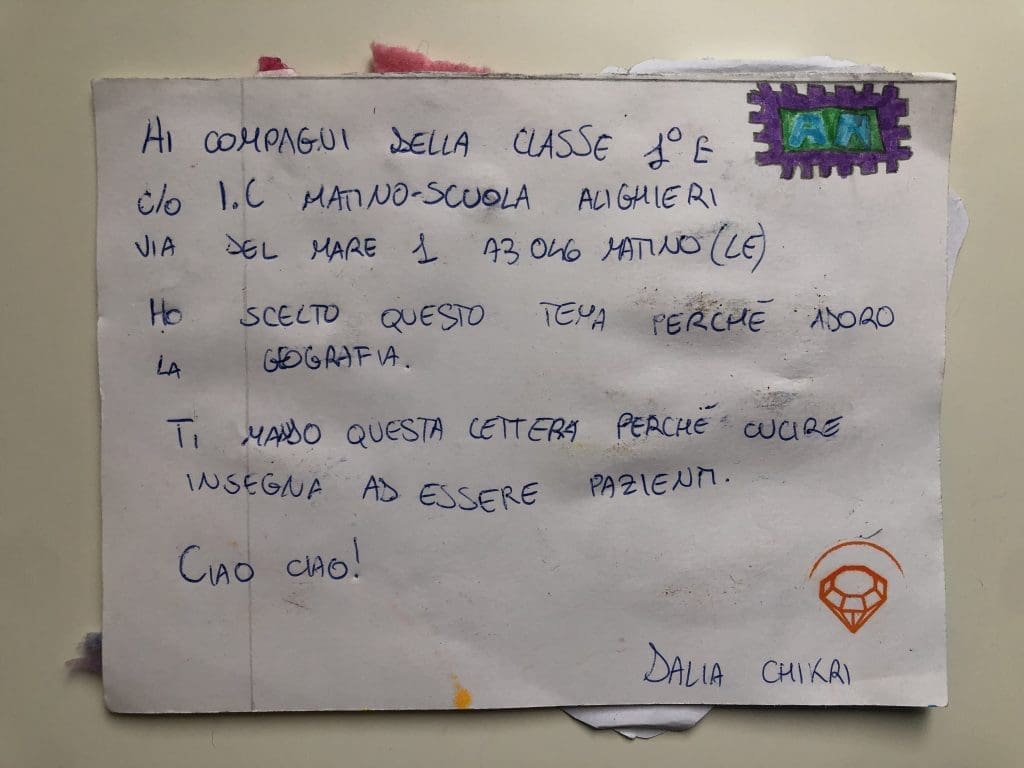 AI COMPAGNI DELLA CLASSE 1° E
AN
C/O I.C MATINO-SCUOLA ALIGHIERI
VIA DEL MARE 1 73046 MATINO (LE)
HO SCELTO QUESTO TEMA PERCHÉ ADORO
LA GEOGRAFIA.
TI MANDO QUESTA LETTERA PERCHÉ CUCIRE
INSEGNA AD ESSERE PAZIENTI.
CIAO CIAO!
DALIA CHIKRI